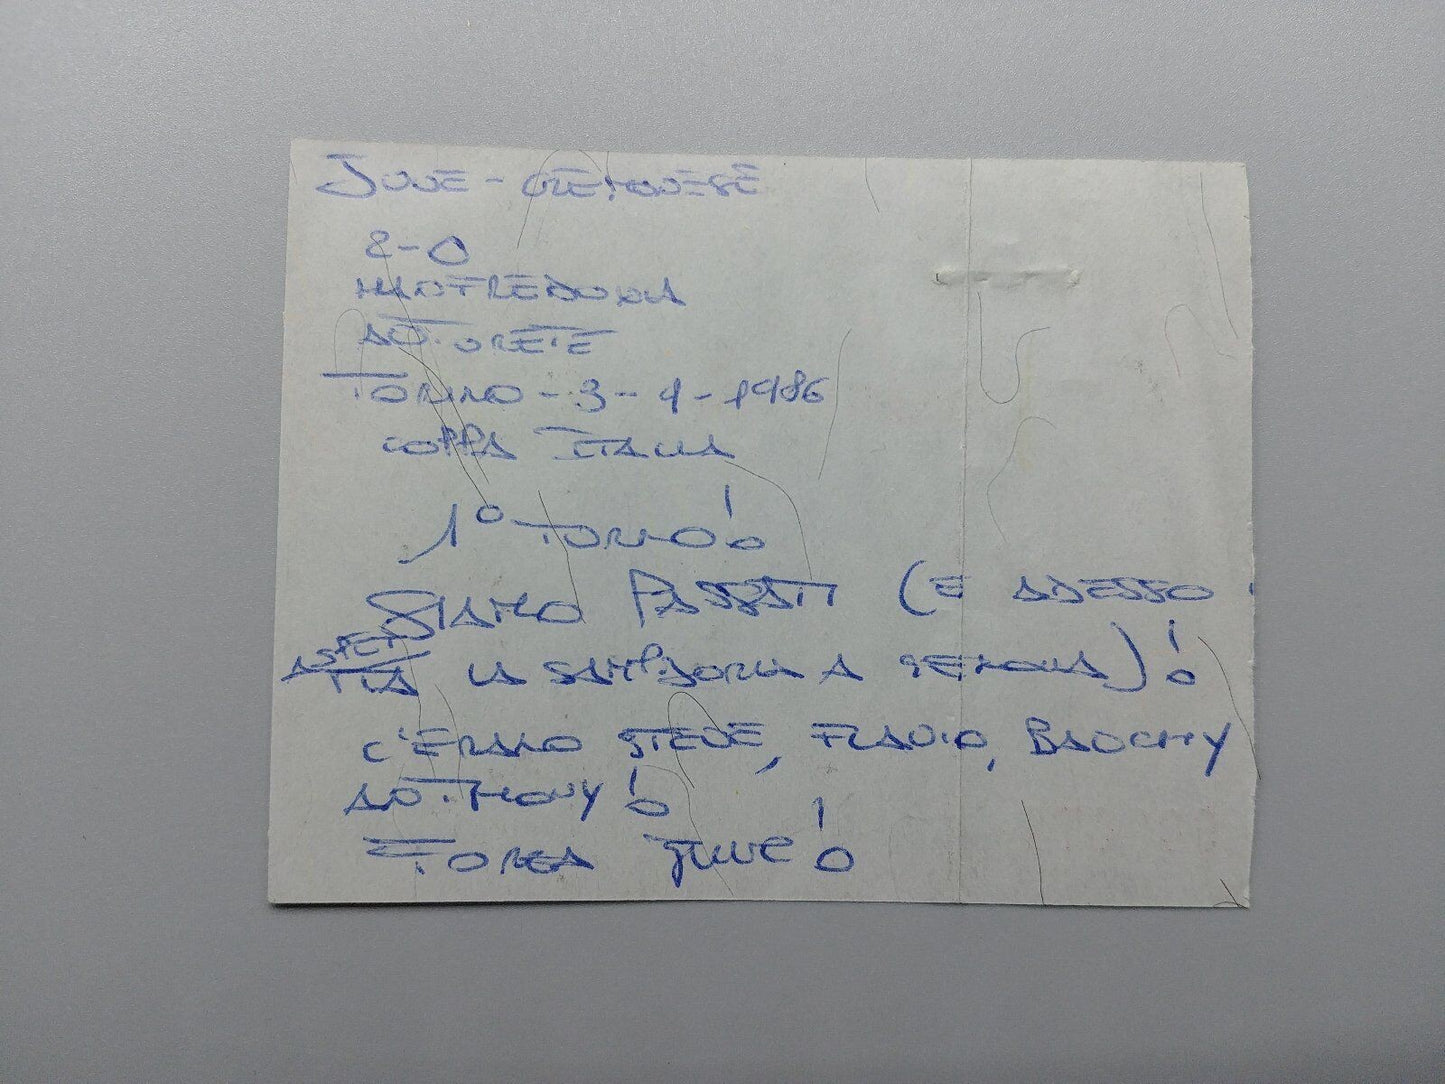 JUVE - CREMONESE
2-0
MANFREDONIA
AUTORETE
TORINO - 3-9-1986
COPPA ITALIA
1° TURNO!
SIAMO PASSATI (E ADESSO
ASPET
TIA LA SAMPDORIA A GENOVA)!
C'ERANO STEVE, FLAVIO,
ANTHONY!
FORZA JUVE!